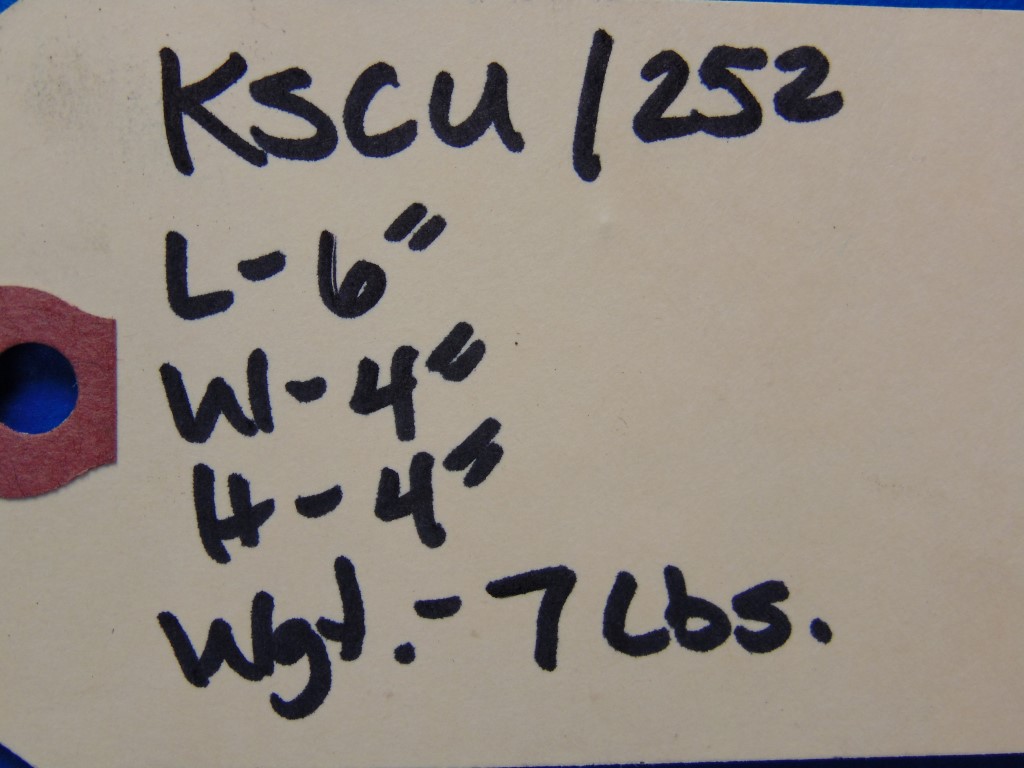 KSCU/252
L-6"
W-4"
H-4"
Wgt.-7 Lbs.